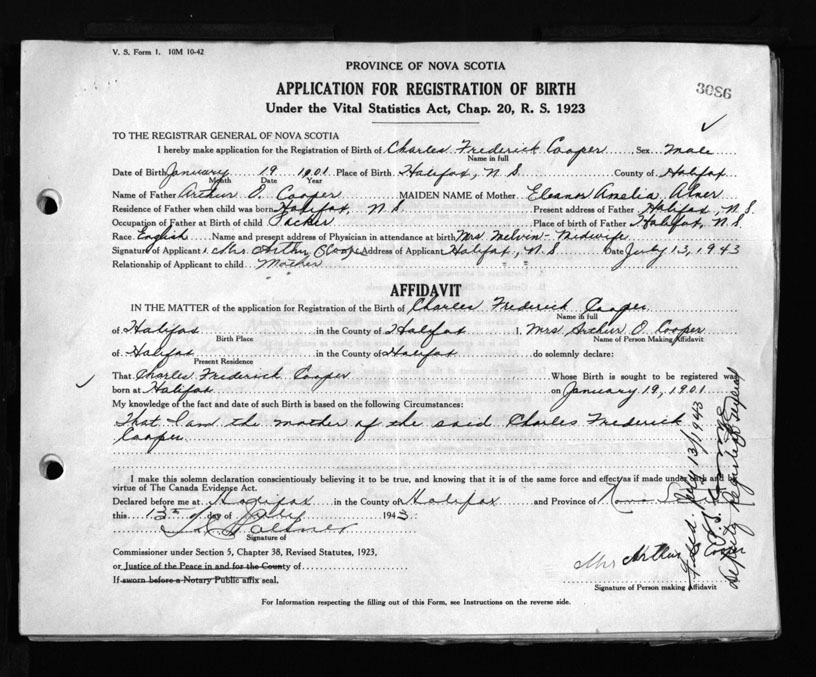 V. S. Form 1. 10M 10-42
PROVINCE OF NOVA SCOTIA
APPLICATION FOR REGISTRATION OF BIRTH
Under the Vital Statistics Act, Chap. 20, R. S. 1923
TO THE REGISTRAR GENERAL OF NOVA SCOTIA
I hereby make application for the Registration of Birth of Charles Frederick Cooper, Sex Male
Name in full
Date of Birth January 19 1901 Place of Birth Halifax, N S County of Halifax
Month Date Year
Name of Father Arthur O. Cooper MAIDEN NAME of Mother Eleanor Amelia
Residence of Father when child was born Halifax, N S Present address of Father Halifax, N.S.
Occupation of Father at Birth of child Packer Place of birth of Father Halifax, N.S.
Race English Name and present address of Physician in attendance at birth Mrs Melvin - Midwife
Signature of Applicant Mrs Arthur O Cooper Address of Applicant Halifax, N.S. Date July 13, 1943
Relationship of Applicant to child Mother
AFFIDAVIT
IN THE MATTER of the application for Registration of the Birth of Charles Frederick Cooper
Name in full
of Halifax in the County of Halifax I, Mrs Arthur O Cooper
Birth Place Name of Person Making Affidavit
of Halifax in the County of Halifax do solemnly declare:
Present Residence
That Charles Frederick Cooper Whose Birth is sought to be registered was
born at Halifax on January 19, 1901
My knowledge of the fact and date of such Birth is based on the following Circumstances:
That I am the mother of the said Charles Frederick
Cooper
I make this solemn declaration conscientiously believing it to be true, and knowing that it is of the same force and effect as if made under oath and by
virtue of The Canada Evidence Act.
Declared before me at Halifax in the County of Halifax and Province of Nova Scotia
this 13th day of July 1943:
Signature of
Commissioner under Section 5, Chapter 38, Revised Statutes, 1923,
or Justice of the Peace in and for the County of
If sworn before a Notary Public affix seal.
Mrs Arthur O Cooper
Signature of Person making Affidavit
Deputy Registrar General
For Information respecting the filling out of this Form, see Instructions on the reverse side.